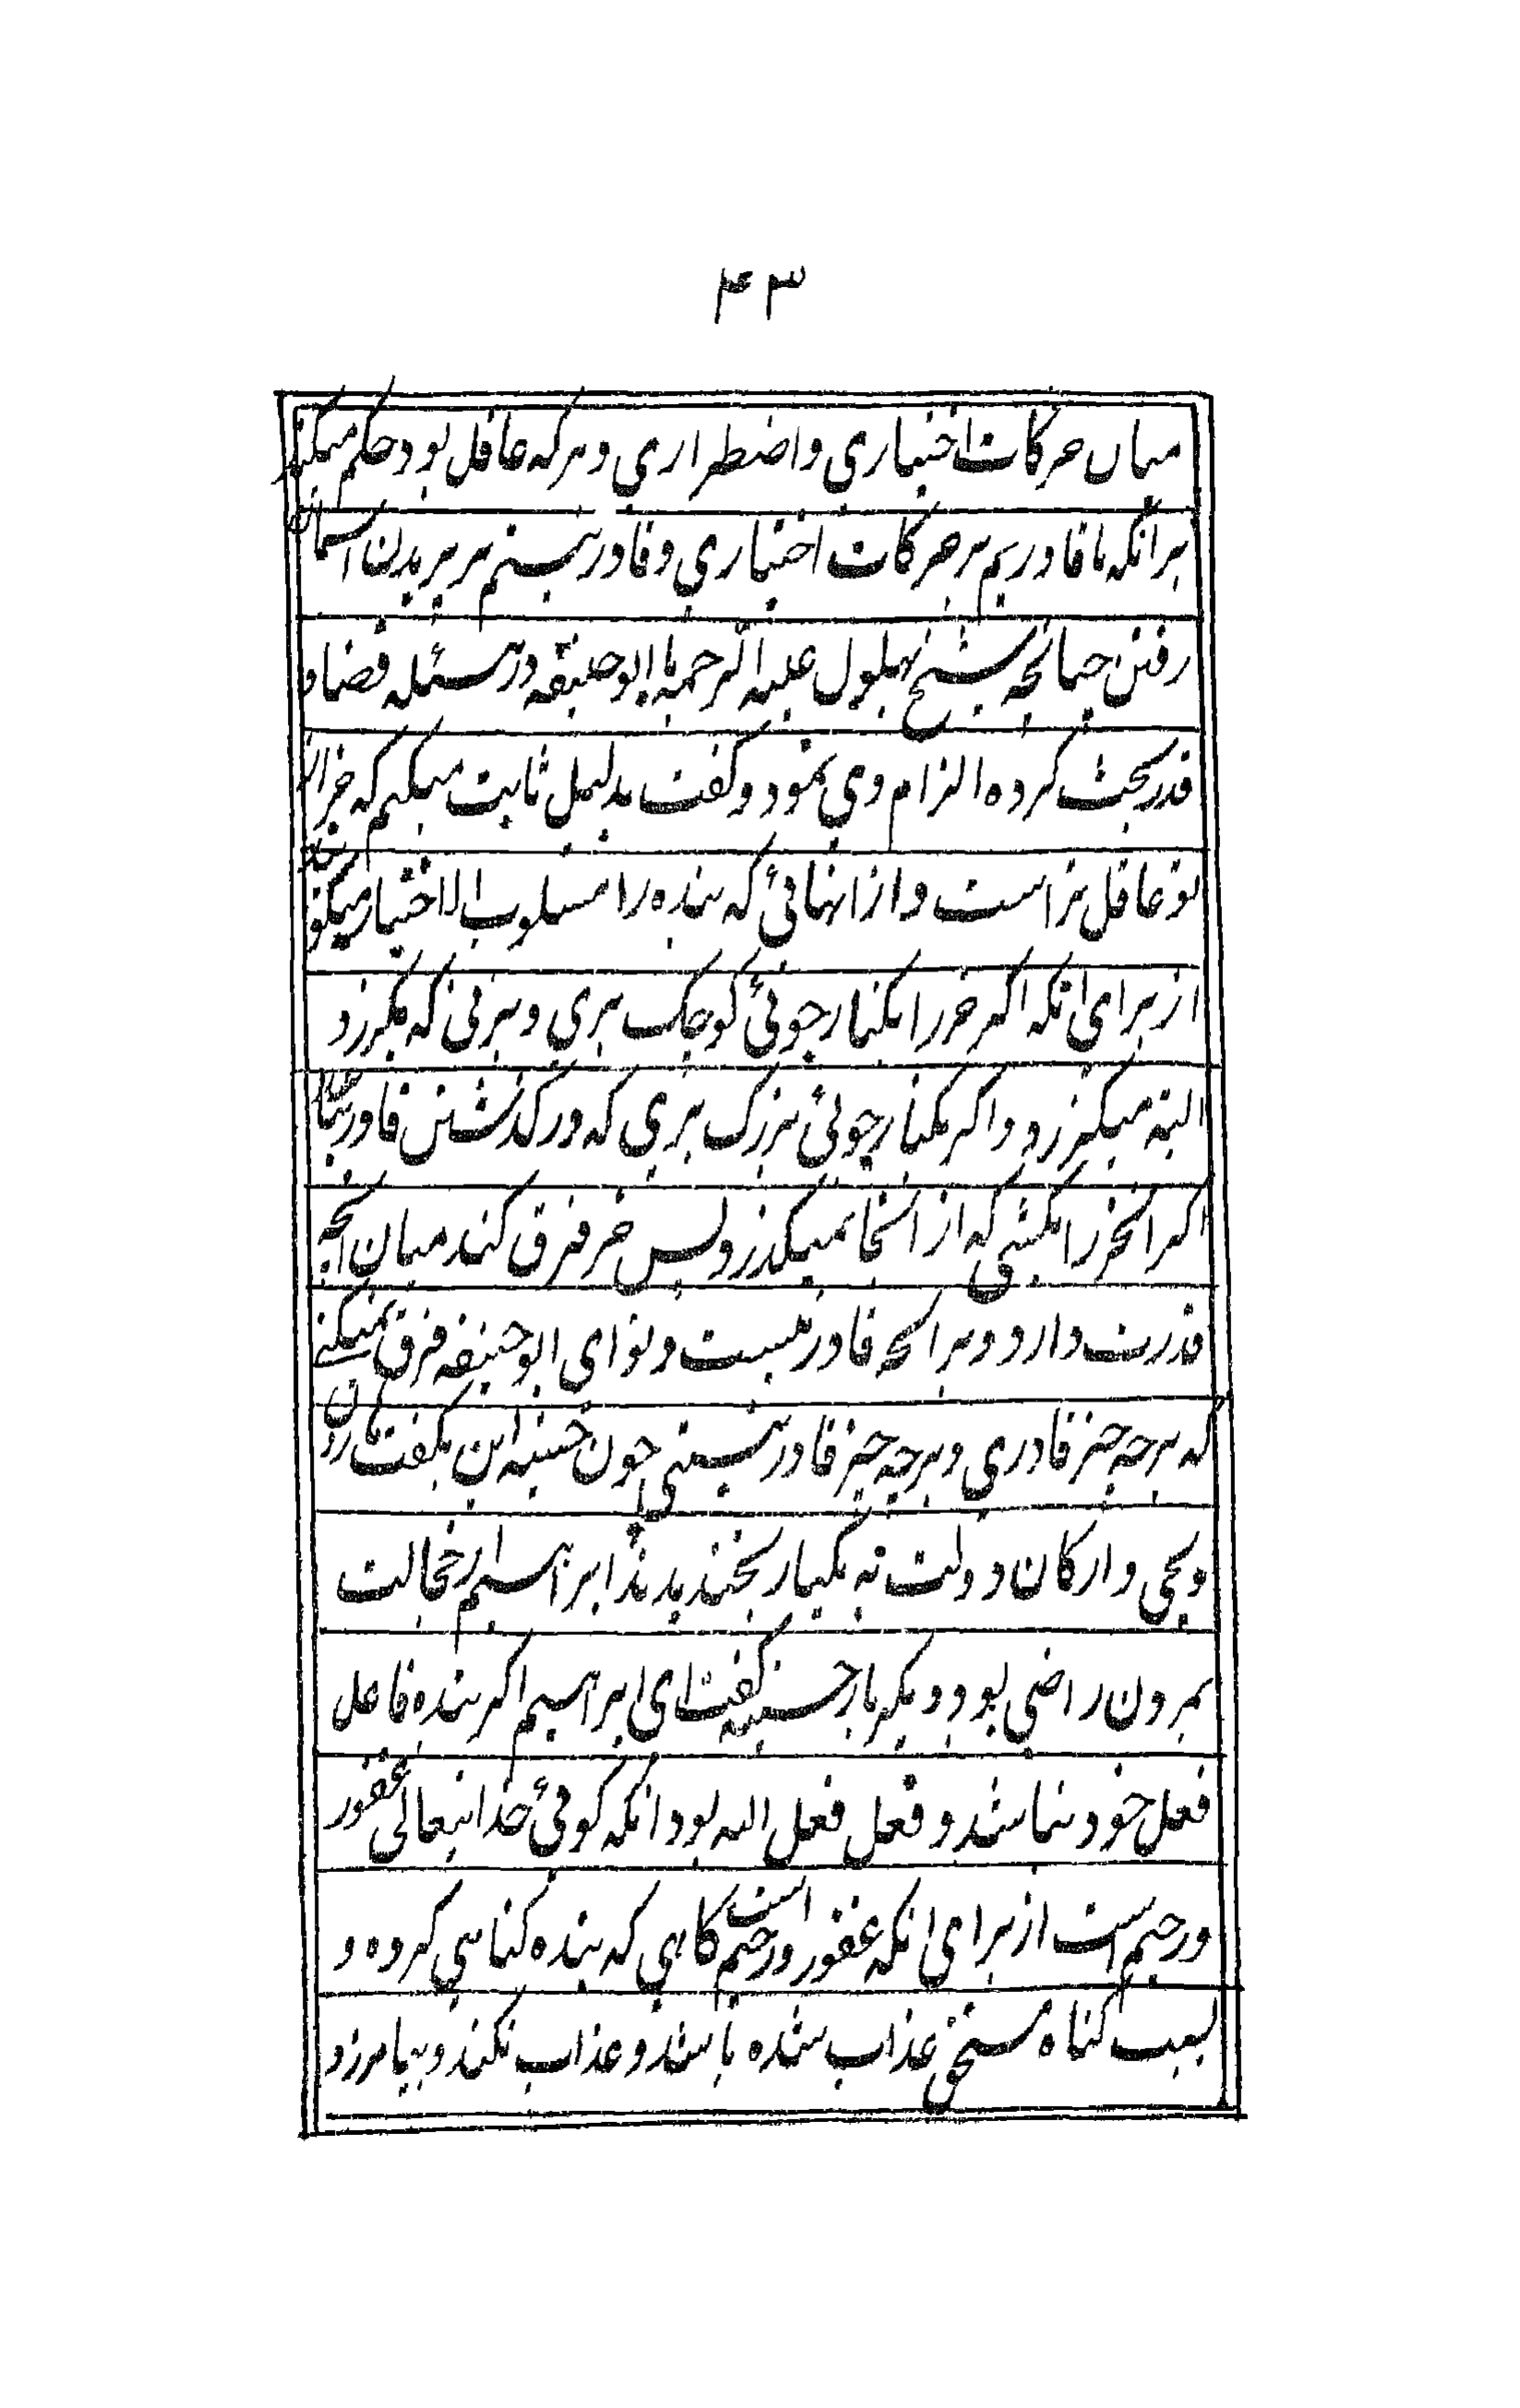 ۴۳
میان حرکات اختیاری و اضطراری و هرکه عاقل بود حکم میکند
برانکه ما قادریم بر حرکات اختیاری و قادر نیستیم بر پریدن آسمان
رفتن چنانچه شیخ بهلول علیه الرحمه با ابوحنیفه در مسئله قضا و
قدر بحث کرده الزام وی نمود و گفت بدلیل ثابت میکنم که خر از
تو عاقل تر است و از انهائی که بنده را مسلوب الاختیار میکو
از برای انکه اگر خر را بکنار جوئی کوچک بری و بزنی که بگذرد
البته میگذرد و اگر بکنار جوئی بزرگ بری که در گذشتن قادر نباشد
اگر انخر را بکشی که از انجا نمیگذرد پس خر فرق کند میان انچه
قدرت دارد و برانچه قادر نیست و تو ای ابوحنیفه فرق نمیکنی
که بر چه چیز قادری و بر چه چیز قادر نیستی چون حسنیه این بگفت هارون
و یحیی و ارکان دولت به یکبار بخندیدند ابراهیم از خجالت
بمردن راضی بود دیگر بار حسنیه گفت ای ابراهیم اگر بنده فاعل
فعل خود نباشد و فعل فعل الله بود انکه گوئی خدایتعالی غفور
و رحیم است از برای انکه غفور و رحیم است گاهی که بنده گناهی کرده و
بسبب گناه مستحق عذاب شده باشد و عذاب نکند و بیامرزد